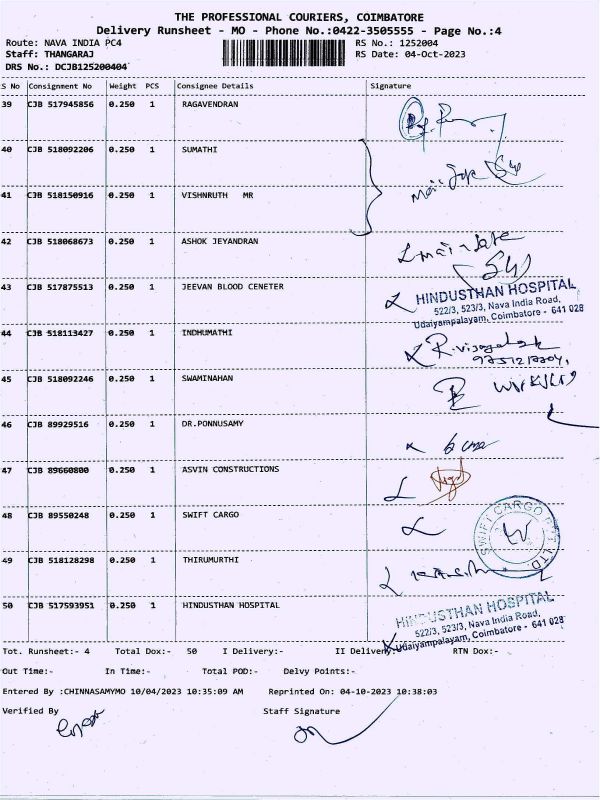 THE PROFESSIONAL COURIERS, COIMBATORE
Delivery Runsheet - MO - Phone No.:0422-3505555 - Page No.:4
Route: NAVA INDIA PC4 RS No.: 1252004
Staff: THANGARAJ RS Date: 04-Oct-2023
DRS No.: DCJB125200404
S No Consignment No Weight PCS Consignee Details Signature
39 CJB 517945856 0.250 1 RAGAVENDRAN
40 CJB 518092206 0.250 1 SUMATHI
41 CJB 518150916 0.250 1 VISHNRUTH MR
42 CJB 518068673 0.250 1 ASHOK JEYANDRAN
43 CJB 517875513 0.250 1 JEEVAN BLOOD CENETER
HINDUSTHAN HOSPITAL
522/3, 523/3, Nava India Road,
Udaiyampalayam, Coimbatore - 641 028
44 CJB 518113427 0.250 1 INDHUMATHI
45 CJB 518092246 0.250 1 SWAMINAHAN
46 CJB 89929516 0.250 1 DR.PONNUSAMY
47 CJB 89660800 0.250 1 ASVIN CONSTRUCTIONS
48 CJB 89550248 0.250 1 SWIFT CARGO
SWIFT CARGO PVT. LTD.
49 CJB 518128298 0.250 1 THIRUMURTHI
50 CJB 517593951 0.250 1 HINDUSTHAN HOSPITAL
HINDUSTHAN HOSPITAL
522/3, 523/3, Nava India Road,
Udaiyampalayam, Coimbatore - 641 028
Tot. Runsheet:- 4 Total Dox:- 50 I Delivery:- II Delivery:- RTN Dox:-
Out Time:- In Time:- Total POD:- Delvy Points:-
Entered By :CHINNASAMYMO 10/04/2023 10:35:09 AM Reprinted On: 04-10-2023 10:38:03
Verified By Staff Signature